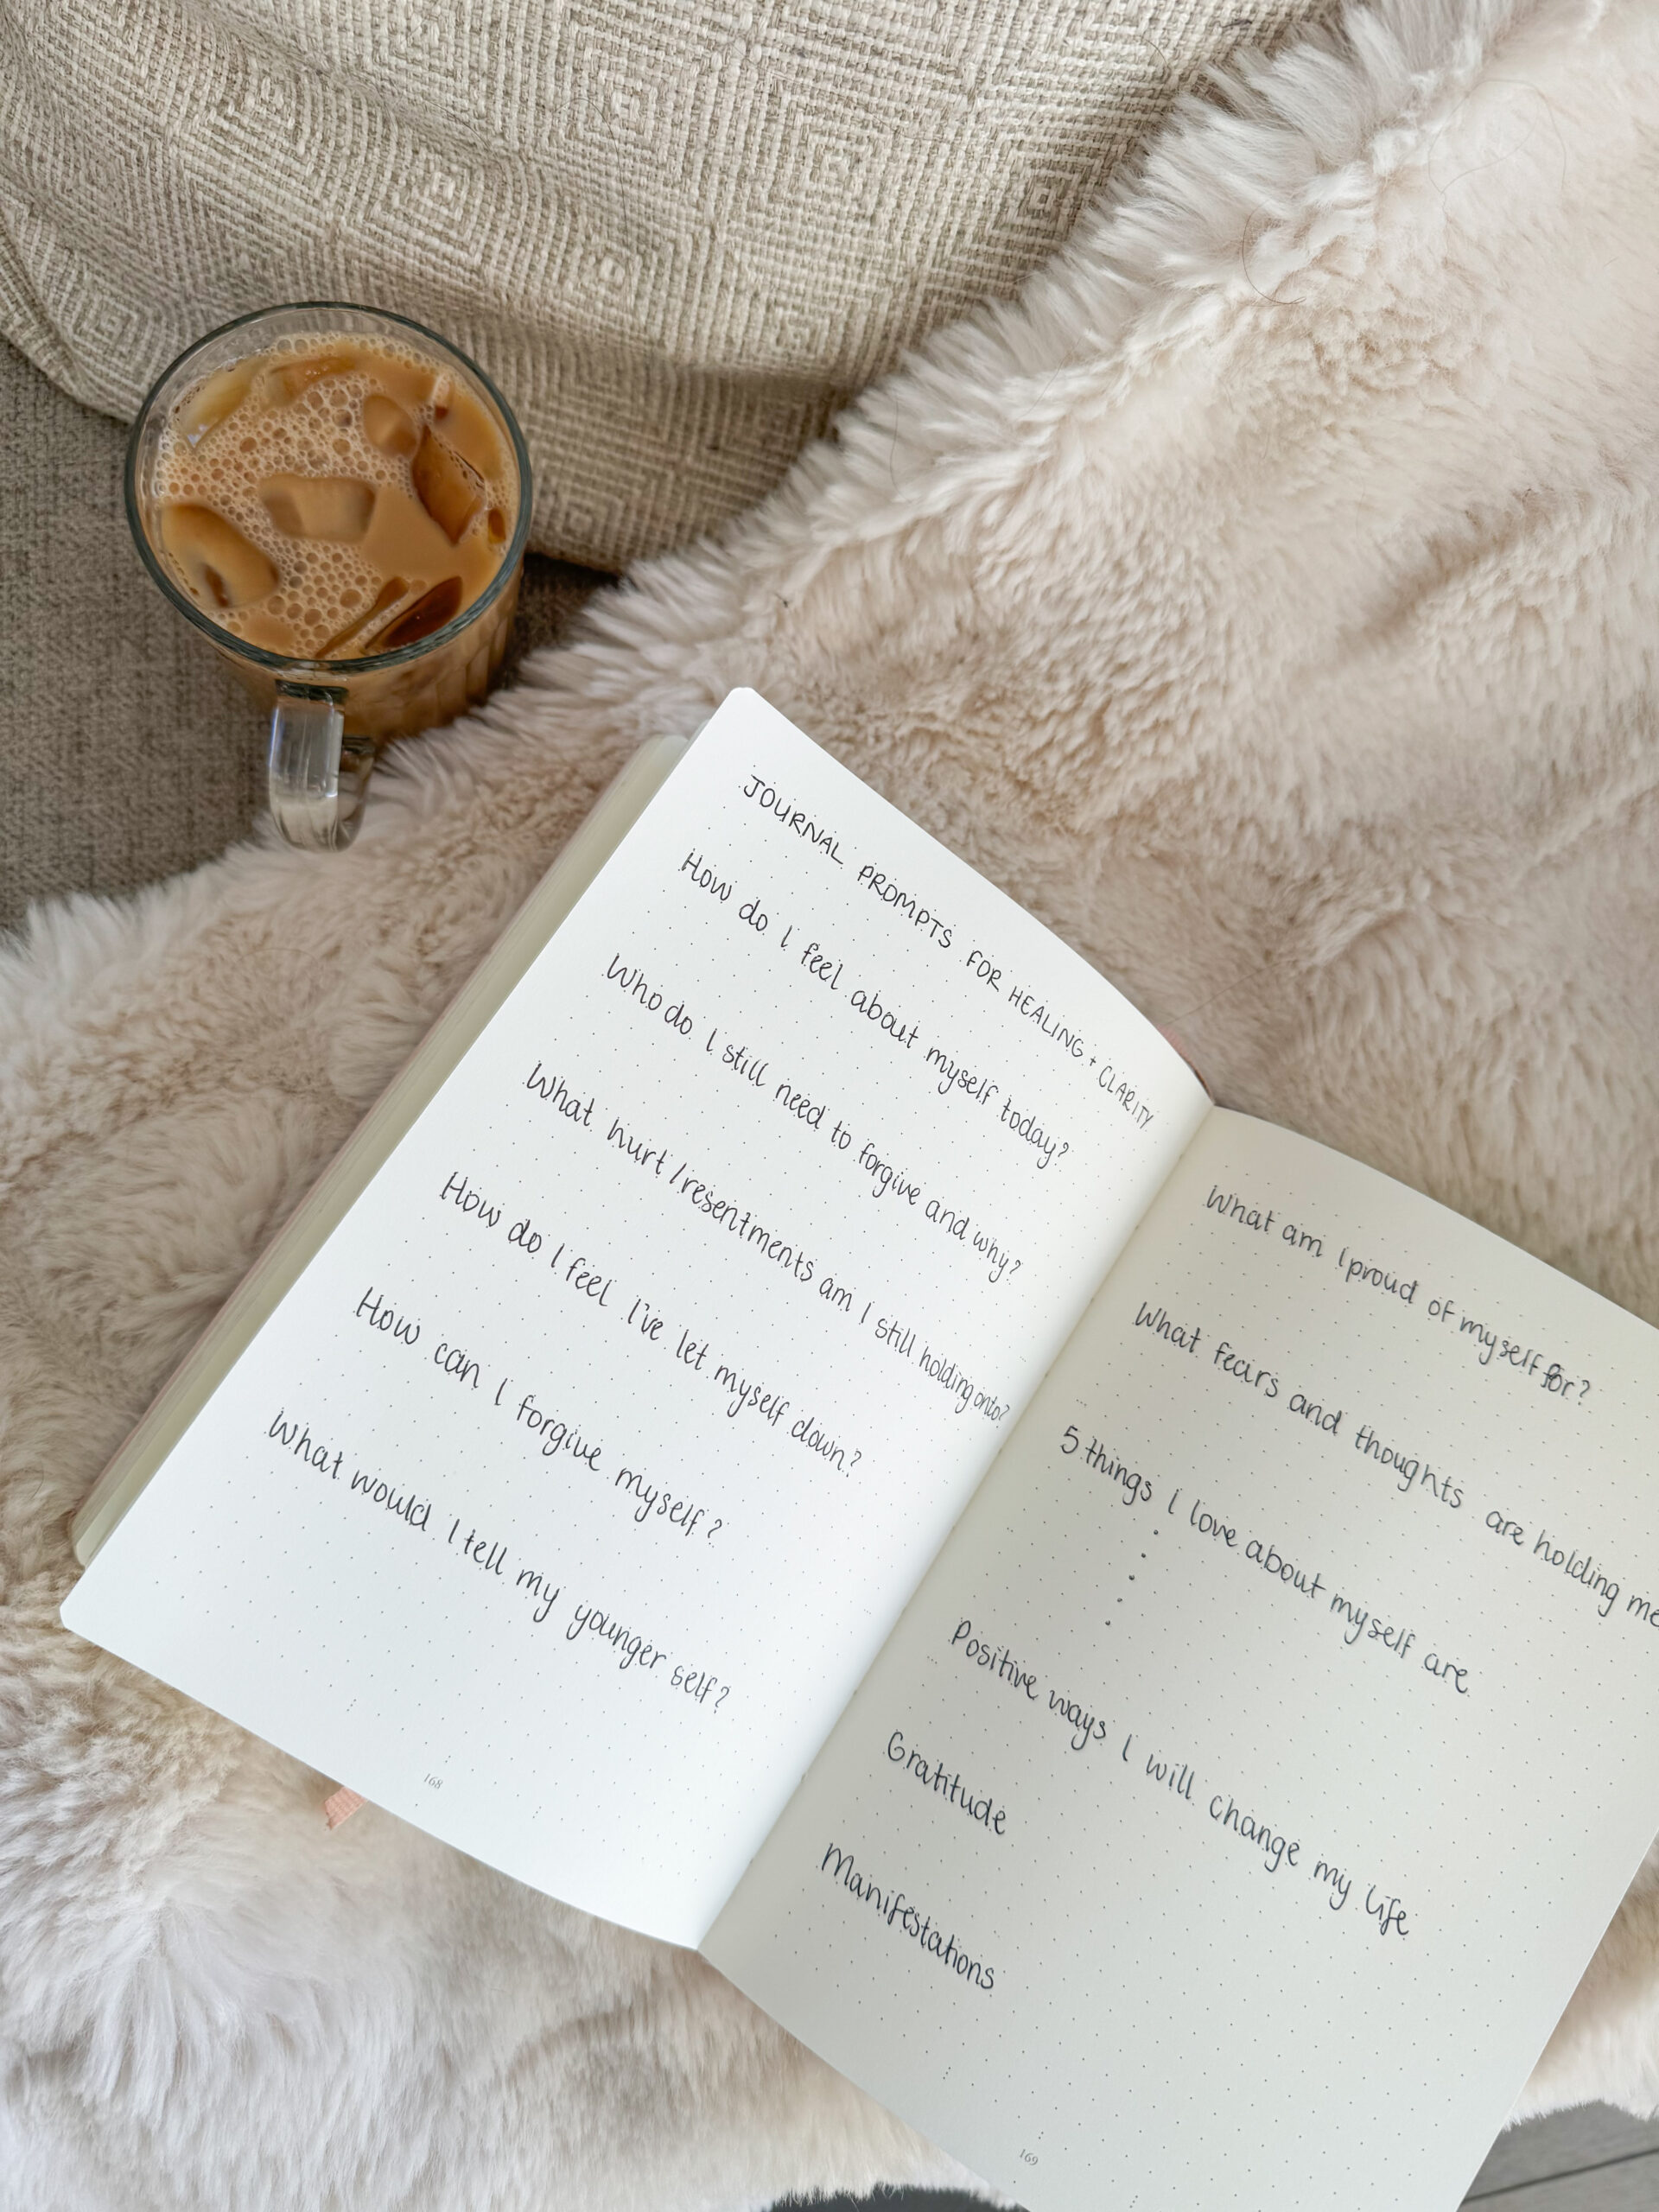 JOURNAL PROMPTS FOR HEALING + CLARITY
How do I feel about myself today?
Who do I still need to forgive and why?
What hurt / resentments am I still holding onto?
How do I feel I've let myself down?
How can I forgive myself?
What would I tell my younger self?
168
What am I proud of myself for?
What fears and thoughts are holding me
5 things I love about myself are
•
•
•
•
•
Positive ways I will change my life
Gratitude
Manifestations
169